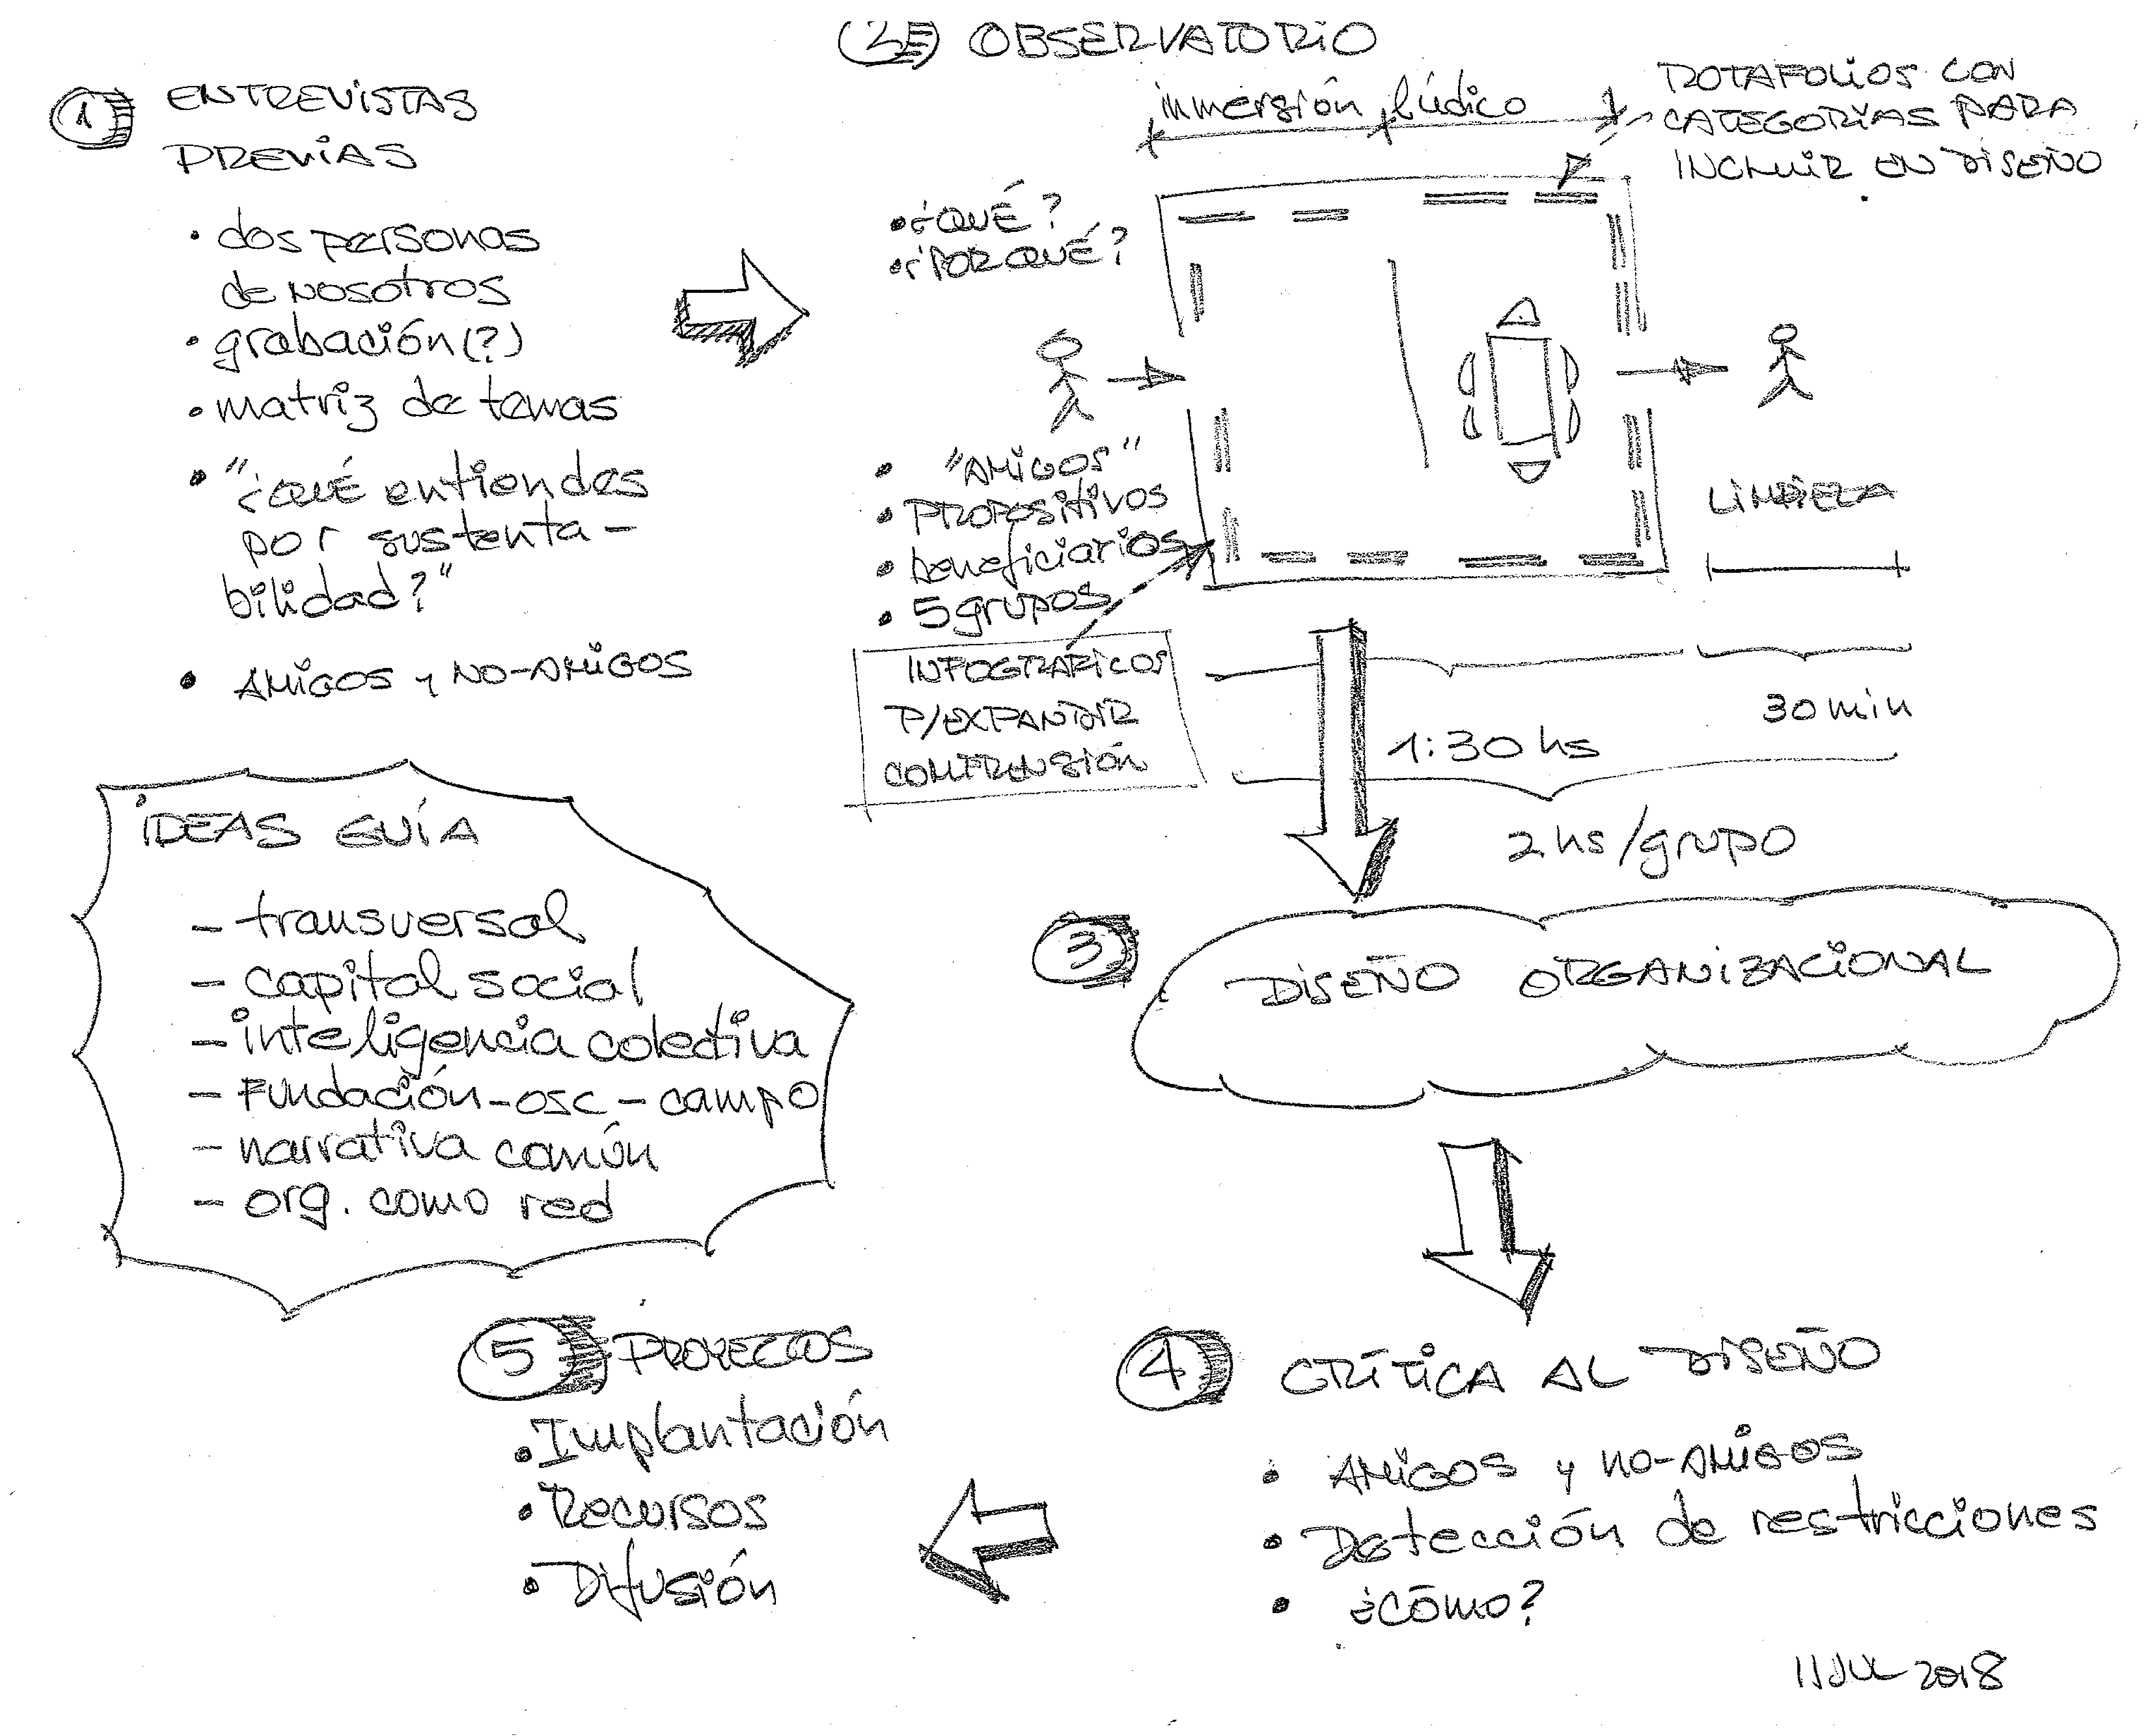 1 ENTREVISTAS
PREVIAS
• dos personas
de nosotros
• grabación (?)
• matriz de temas
• "¿QUÉ entiendes
por sustenta-
bilidad?"
• AMIGOS y NO-AMIGOS
2 OBSERVATORIO
inmersión lúdico
ROTAFOLIOS CON
CATEGORÍAS PARA
INCLUIR EN DISEÑO
• ¿QUÉ?
• ¿POR QUÉ?
• "AMIGOS"
• PROPOSITIVOS
• beneficiarios
• 5 grupos
INFOGRAFICOS
P/EXPANDIR
COMPRENSIÓN
LIMPIEZA
30 min
1:30 hs
2 hs/grupo
IDEAS GUÍA
- transversal
- capital social
- inteligencia colectiva
- FUNdación-osc-campo
- narrativa común
- org. como red
3 DISEÑO ORGANIZACIONAL
4 CRÍTICA AL DISEÑO
• AMIGOS y NO-AMIGOS
• Detección de restricciones
• ¿CÓMO?
5 PROYECTOS
• Implantación
• Recursos
• Difusión
11 JUL 2018